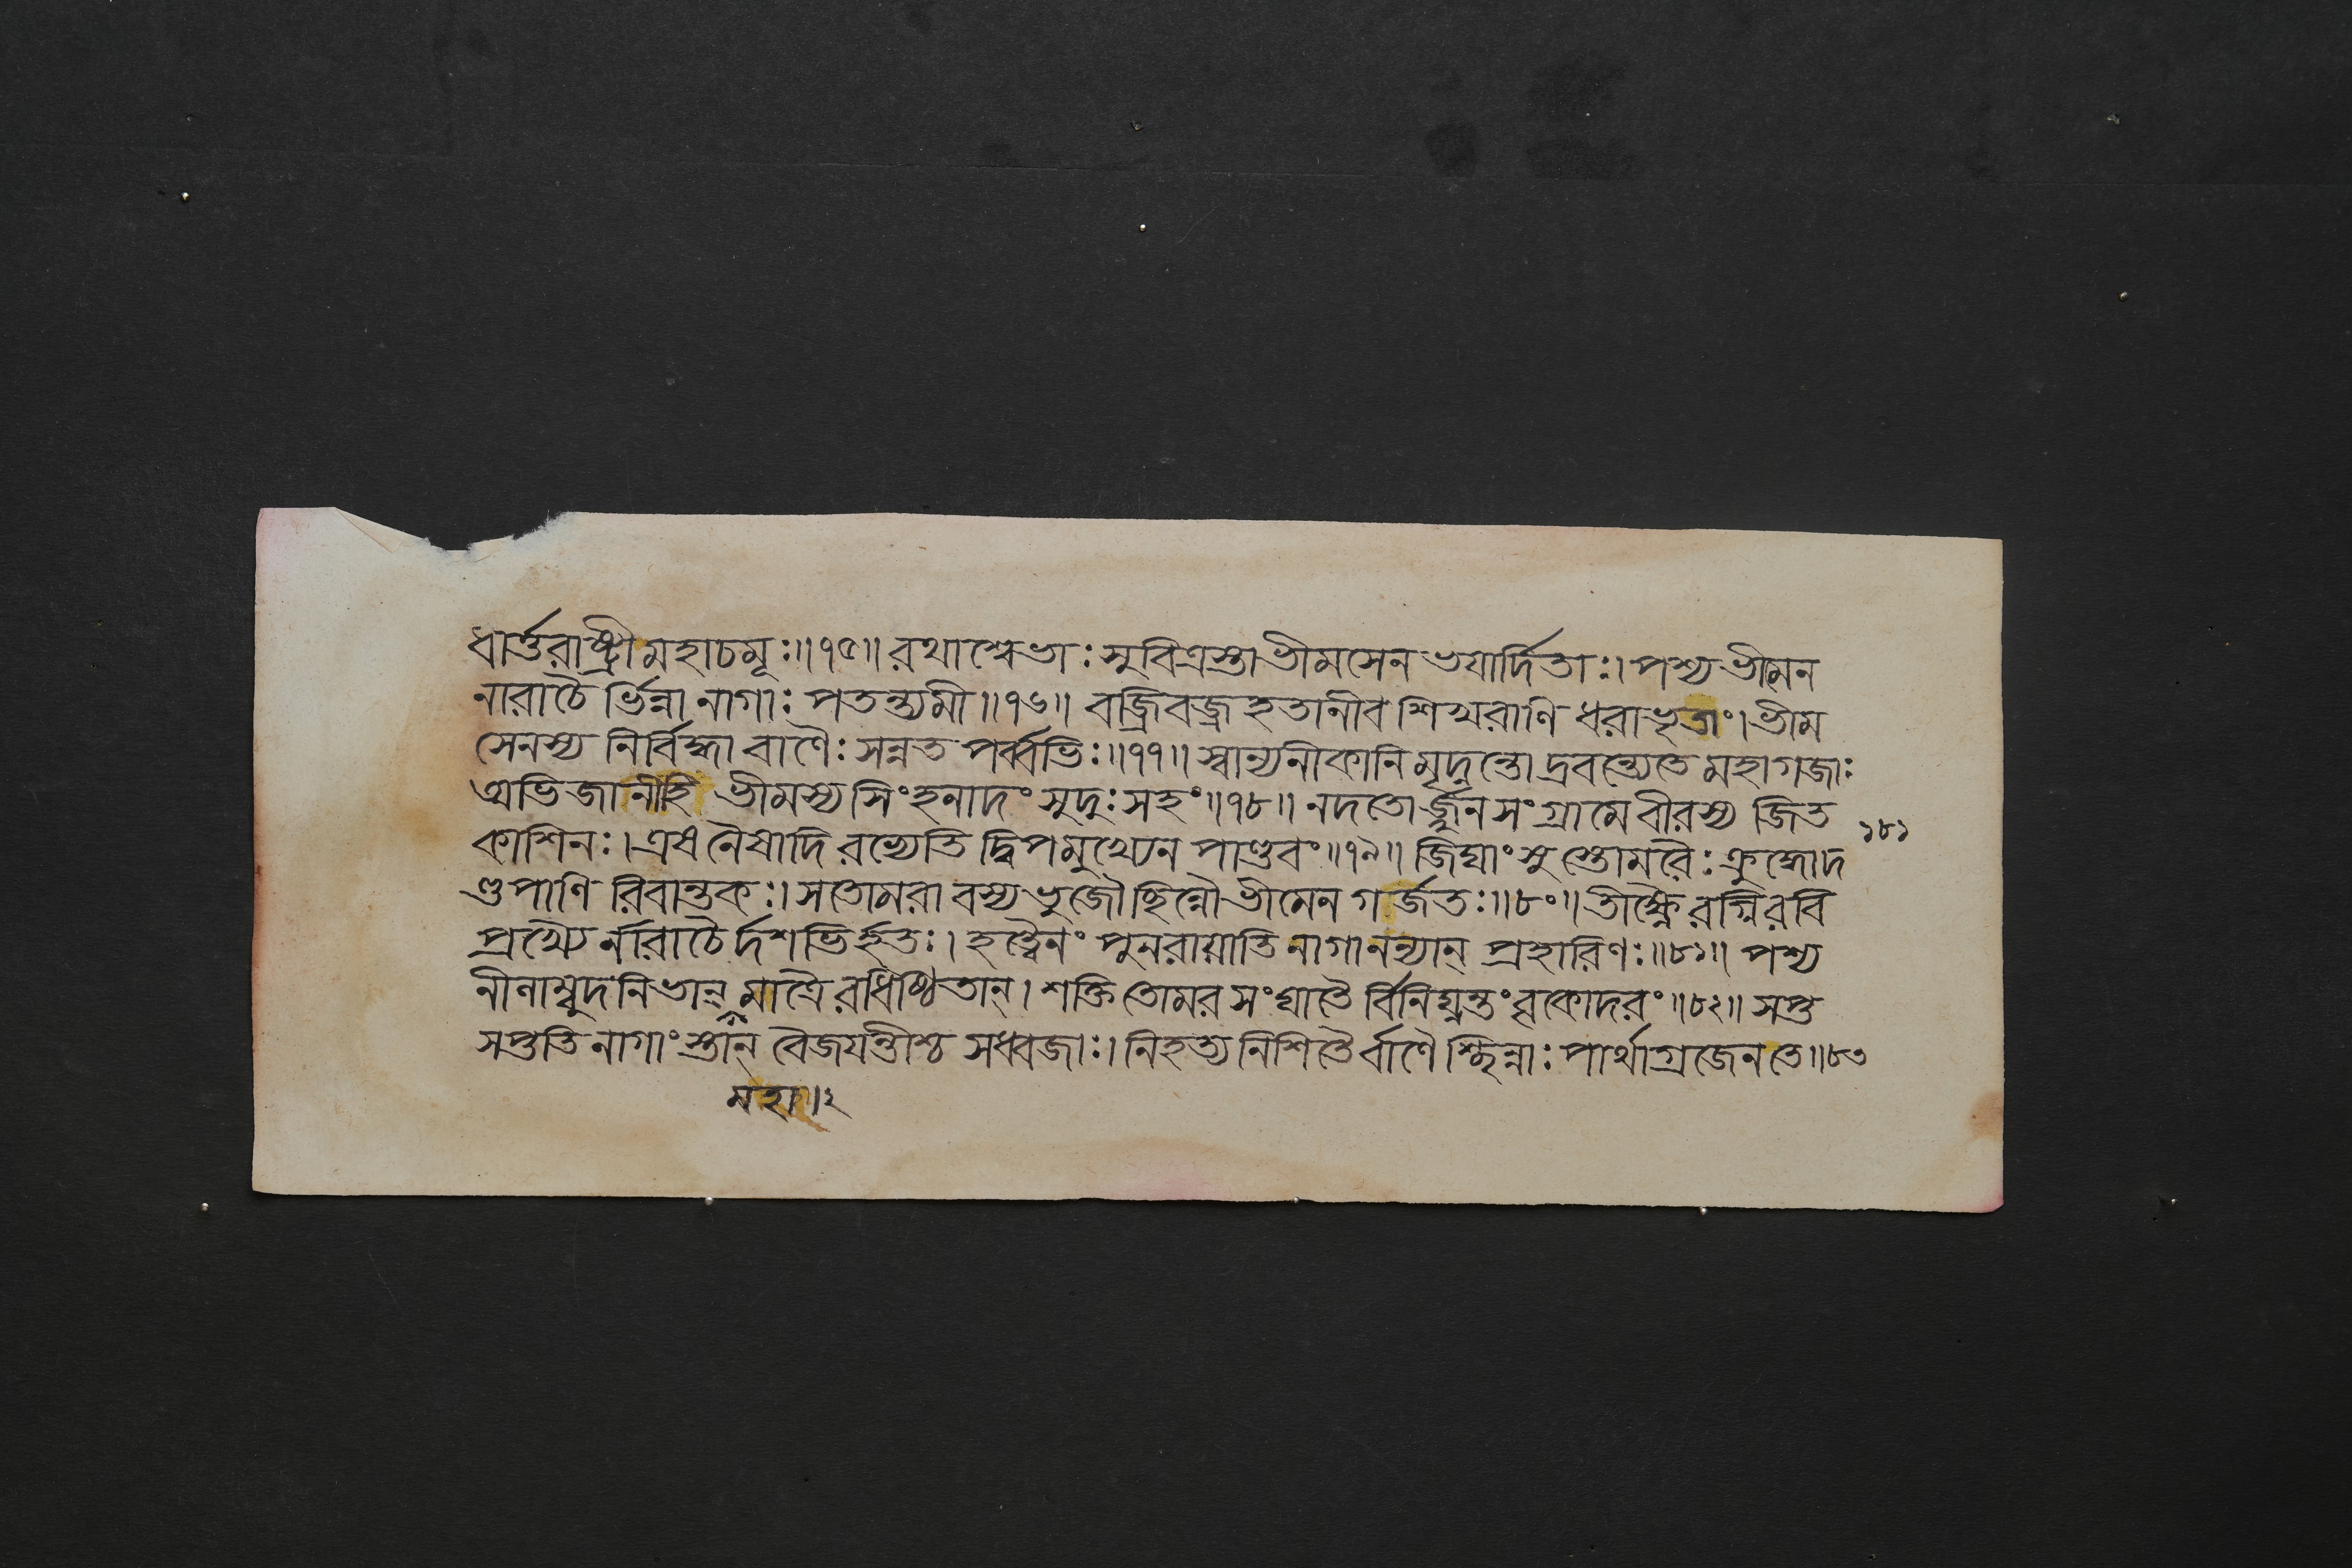 ধার্ত্তরাষ্ট্রী মহাচমূঃ॥৭৫॥ রথাশ্বেভাঃ সুবিত্রস্তা ভীমসেন ভযার্দিতাঃ। পশ্য ভীমেন
নারাচৈ র্ভিন্না নাগাঃ পতন্ত্যমী॥৭৬॥ বজ্রিবজ্র হতানীব শিখরাণি ধরাভৃতাং। ভীম
সেনস্য নির্বিদ্ধা বাণৈঃ সন্নত পর্ব্বভিঃ॥৭৭॥ স্বান্যনীকানি মৃদ্নন্তো দ্রবন্ত্যেতে মহাগজাঃ
অভিজানীহি ভীমস্য সিংহনাদং সুদুঃসহং॥৭৮॥ নদতোর্জ্জুন সংগ্রামে বীরস্য জিত
কাশিনঃ। এষ নৈষাদি রভ্যেতি দ্বিপমুখ্যেন পাণ্ডবং॥৭৯॥ জিঘাংসুস্তোমরৈঃ ক্রুদ্ধোদ
১৮১
ণ্ডপাণি রিবান্তকঃ। সতোমরা বস্য ভুজৌ ছিন্নৌ ভীমেন গর্জতঃ॥৮০॥ তীক্ষ্ণৈ রগ্নিরবি
প্রখ্যৈ র্নারাচৈ র্দশভির্হতঃ। হত্বৈনং পুনরায়াতি নাগানন্যান্ প্রহারিণঃ॥৮১॥ পশ্য
নীলাম্বুদনিভান্ মাত্রৈ রধিষ্ঠিতান্। শক্তি তোমর সংঘাতৈ র্বিনিঘ্নন্তং বৃকোদরং॥৮২॥ সপ্ত
সপ্ততি নাগাংস্তান্ বৈজযন্তীশ্চ সধ্বজাঃ। নিহত্য নিশিতৈ র্বাণৈ শ্ছিন্নাঃ পার্থাগ্রজেন তে॥৮৩
মহা॥২